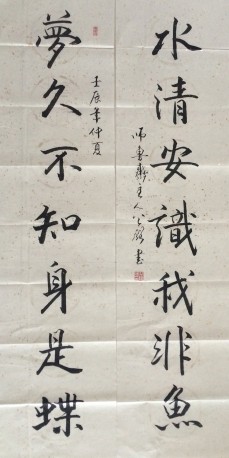 水清安識我非魚
夢久不知身是蝶
壬辰年仲夏